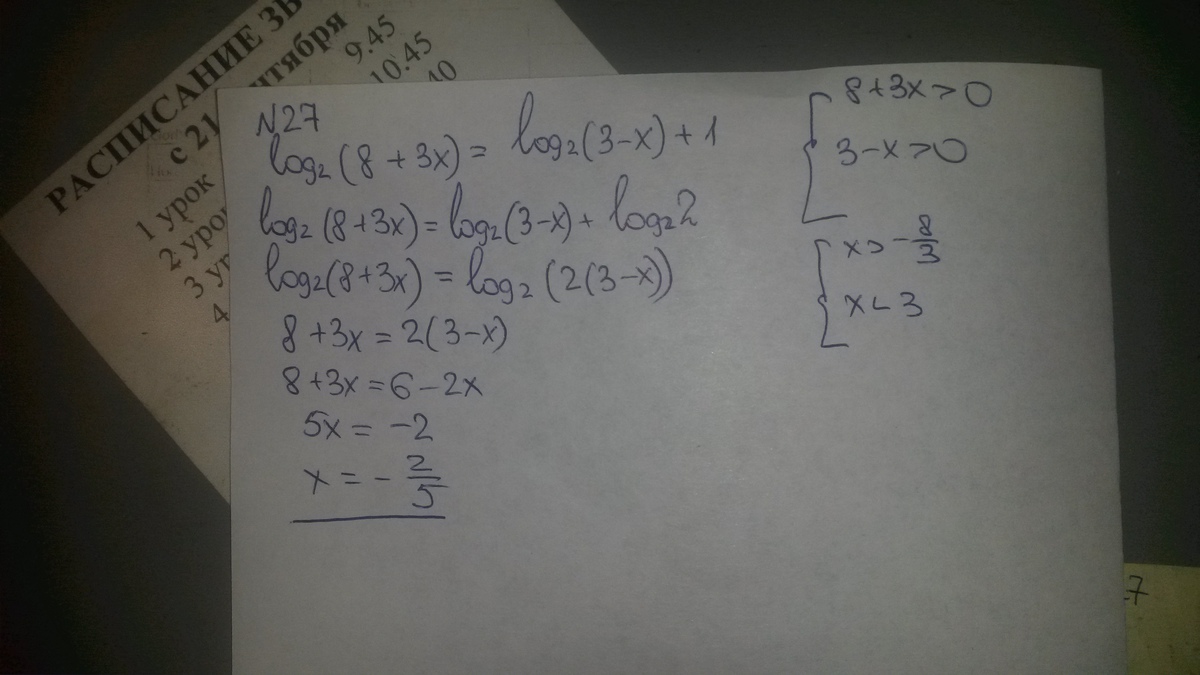 РАСПИСАНИЕ ЗВ
с 21 нтября
1 урок 9.45
2 уро 10.45
3 ур 40
4
N27
log₂(8 + 3x) = log₂(3-x) + 1
log₂(8+3x) = log₂(3-x) + log₂2
log₂(8+3x) = log₂(2(3-x))
8 + 3x = 2(3-x)
8 + 3x = 6 - 2x
5x = -2
x = - 2/5
8 + 3x > 0
3 - x > 0
x > - 8/3
x < 3
7